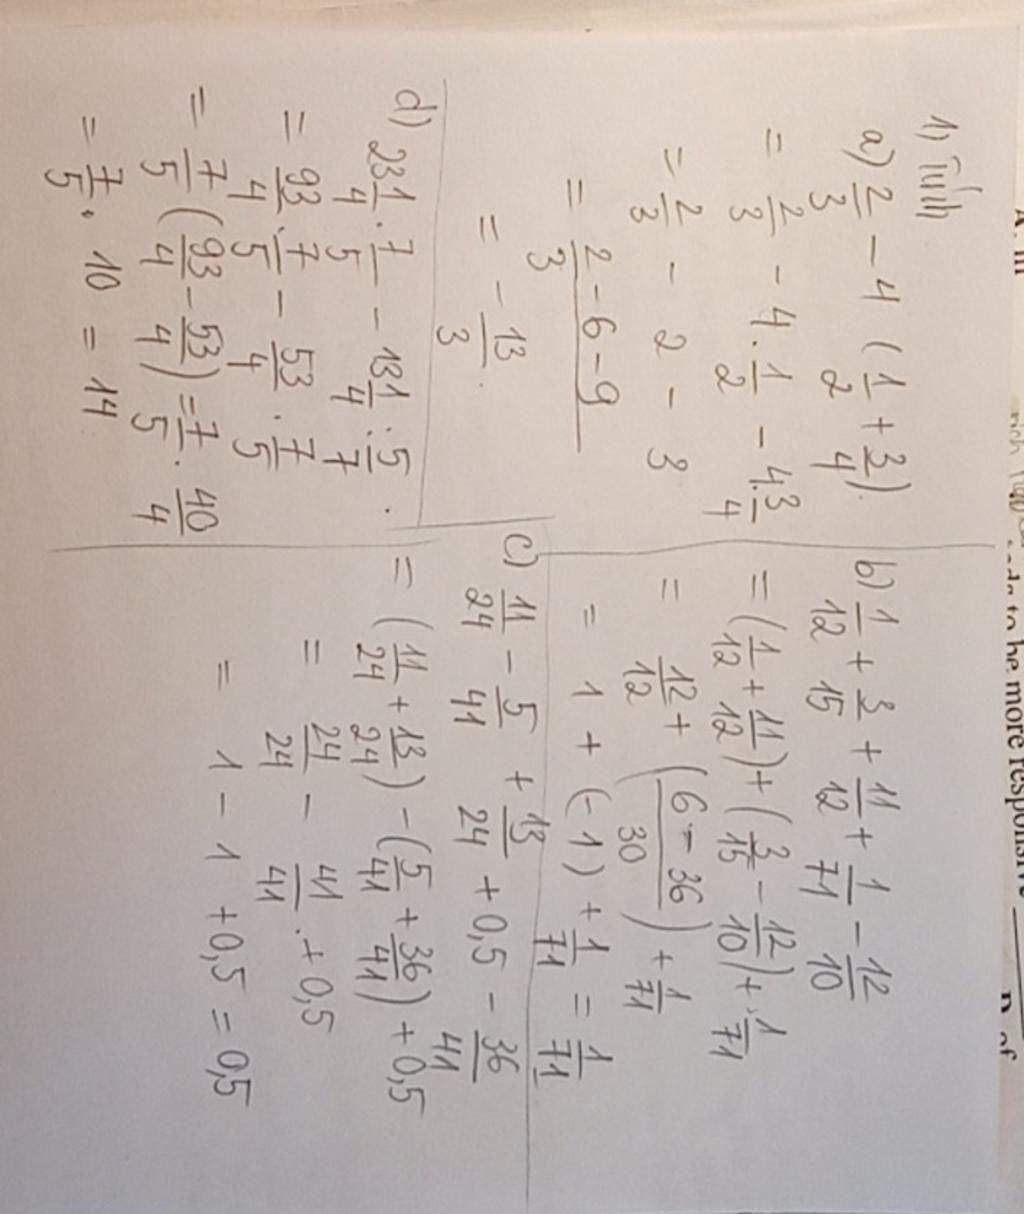 1) Tính
a) 2/3 - 4 (1/2 + 3/4).
= 2/3 - 4.1/2 - 4.3/4
= 2/3 - 2 - 3
= 2-6-9/3
= -13/3.
b) 1/12 + 3/15 + 11/12 + 1/71 - 12/10
= (1/12 + 11/12) + (3/15 - 12/10) + 1/71
= 12/12 + (6-36/30) + 1/71
= 1 + (-1) + 1/71 = 1/71
c) 11/24 - 5/41 + 13/24 + 0,5 - 36/41
= (11/24 + 13/24) - (5/41 + 36/41) + 0,5
= 24/24 - 41/41 + 0,5
= 1 - 1 + 0,5 = 0,5
d) 23 1/4 . 7/5 - 13 1/4 : 5/7.
= 93/4 . 7/5 - 53/4 . 7/5
= 7/5 (93/4 - 53/4) = 7/5 . 40/4
= 7/5 . 10 = 14
to be more responsive